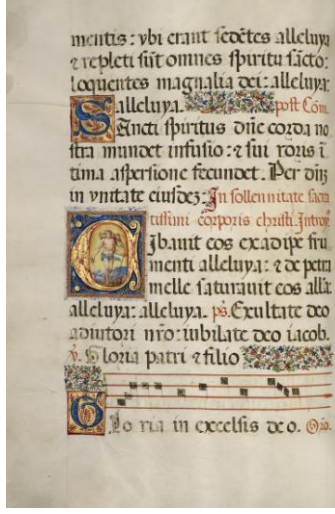 mentis : ybi erant sedētes alleluya
⁊ repleti sūt omnes spiritu sācto :
loquentes magnalia dei : alleluya :
alleluya. post Cōm.
Sancti spiritus dn̄e corda no
stra mundet infusio : ⁊ sui roris ī
tima aspersione fecundet. Per dn̄ȝ
in vnitate eiusdeȝ : In sollennitate sacra
tissimi corporis christi. Introi.
Cibauit eos ex adipe fru
menti alleluya : ⁊ de petra
melle saturauit eos alłā
alleluya : alleluya. ps. Exultate deo
adiutori nr̄o : iubilate deo iacob.
v. Gloria patri ⁊ filio
Glo ria in excelsis de o. Orō.